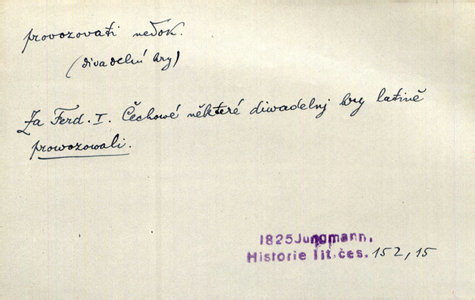 provozovati nedok.
(divadelní hry)
Za Ferd. I. Čechowé některé diwadelnj hry latině
prowozowali.
1825 Jungmann,
Historie lit. čes. 152,15